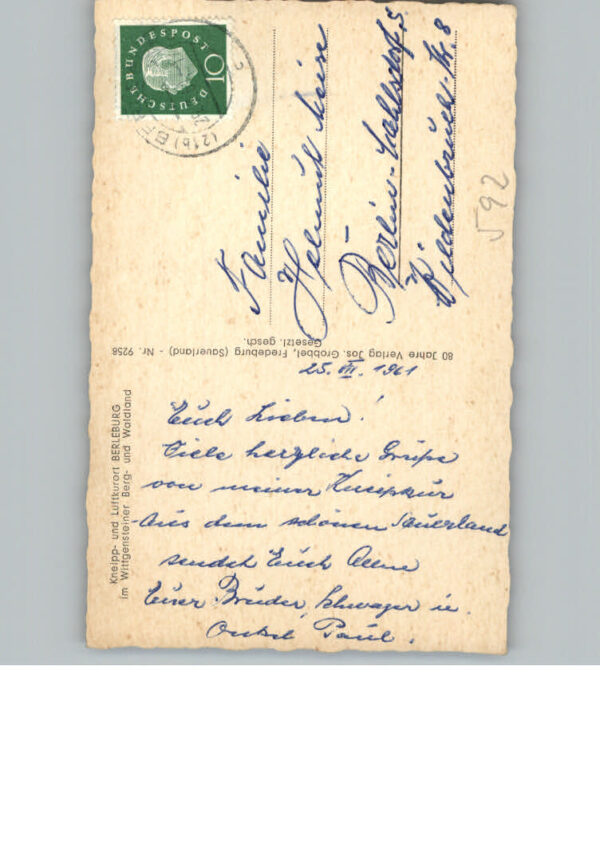 DEUTSCHE BUNDESPOST
10
(21b) BE
Familie
Helmut
Berlin-
Nr. 8
592
80 Jahre Verlag Jos. Grobbel, Fredeburg (Sauerland) - Nr. 9258
Gesetzl. gesch.
Kneipp- und Luftkurort BERLEBURG
im Wittgensteiner Berg- und Waldland
25. VII. 1961
Euch Lieben!
Viele herzliche Grüße
von meiner Kneipkur
aus dem schönen Sauerland
sendet Euch Allen
Euer Bruder, Schwager u.
Onkel Paul.